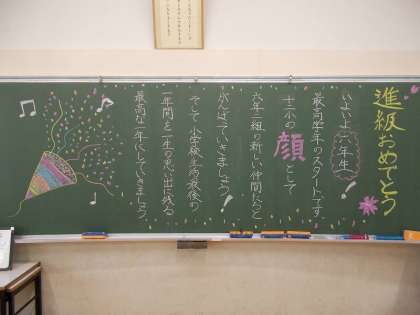 進級おめでとう
いよいよ六年生!
最高学年のスタートです。
十三小の顔として
六年三組の新しい仲間たちと
がんばっていきましょう!
そして小学校生活最後の
一年間を一生の思い出に残る
最高な一年にしていきましょう。